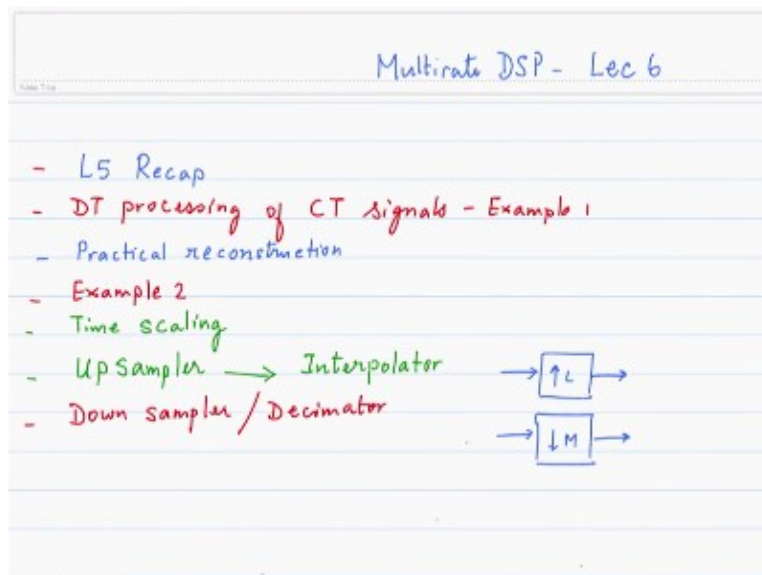 Multirate DSP - Lec 6
- L5 Recap
- DT processing of CT signals - Example 1
- Practical reconstruction
- Example 2
- Time scaling
- Up Sampler → Interpolator → ↑L →
- Down sampler / Decimator → ↓M →